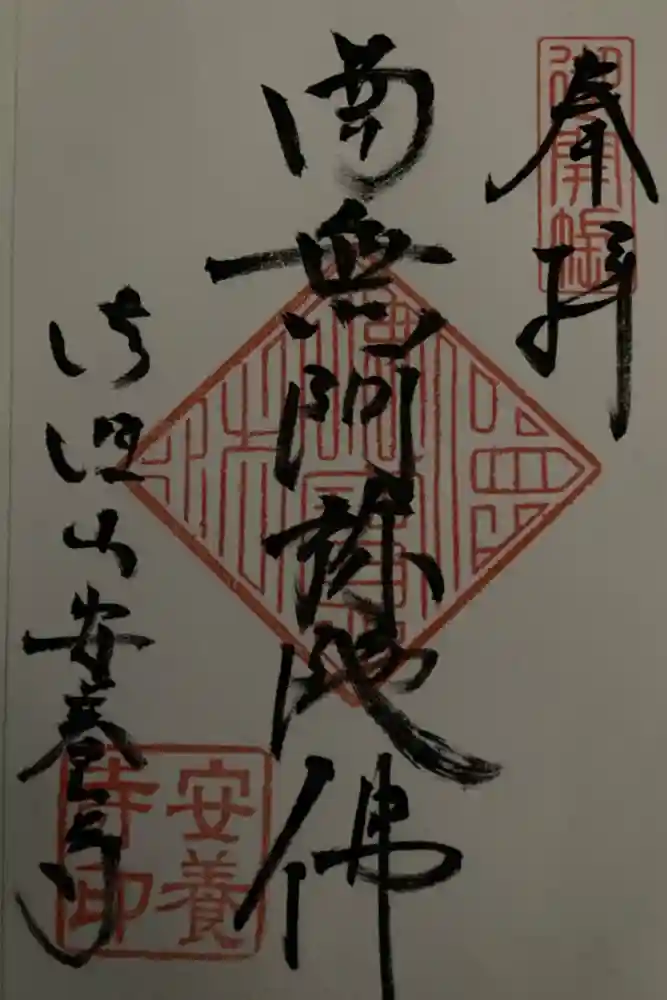 奉拝
御開帳
南無阿弥陀佛
山安養寺
安養
寺印